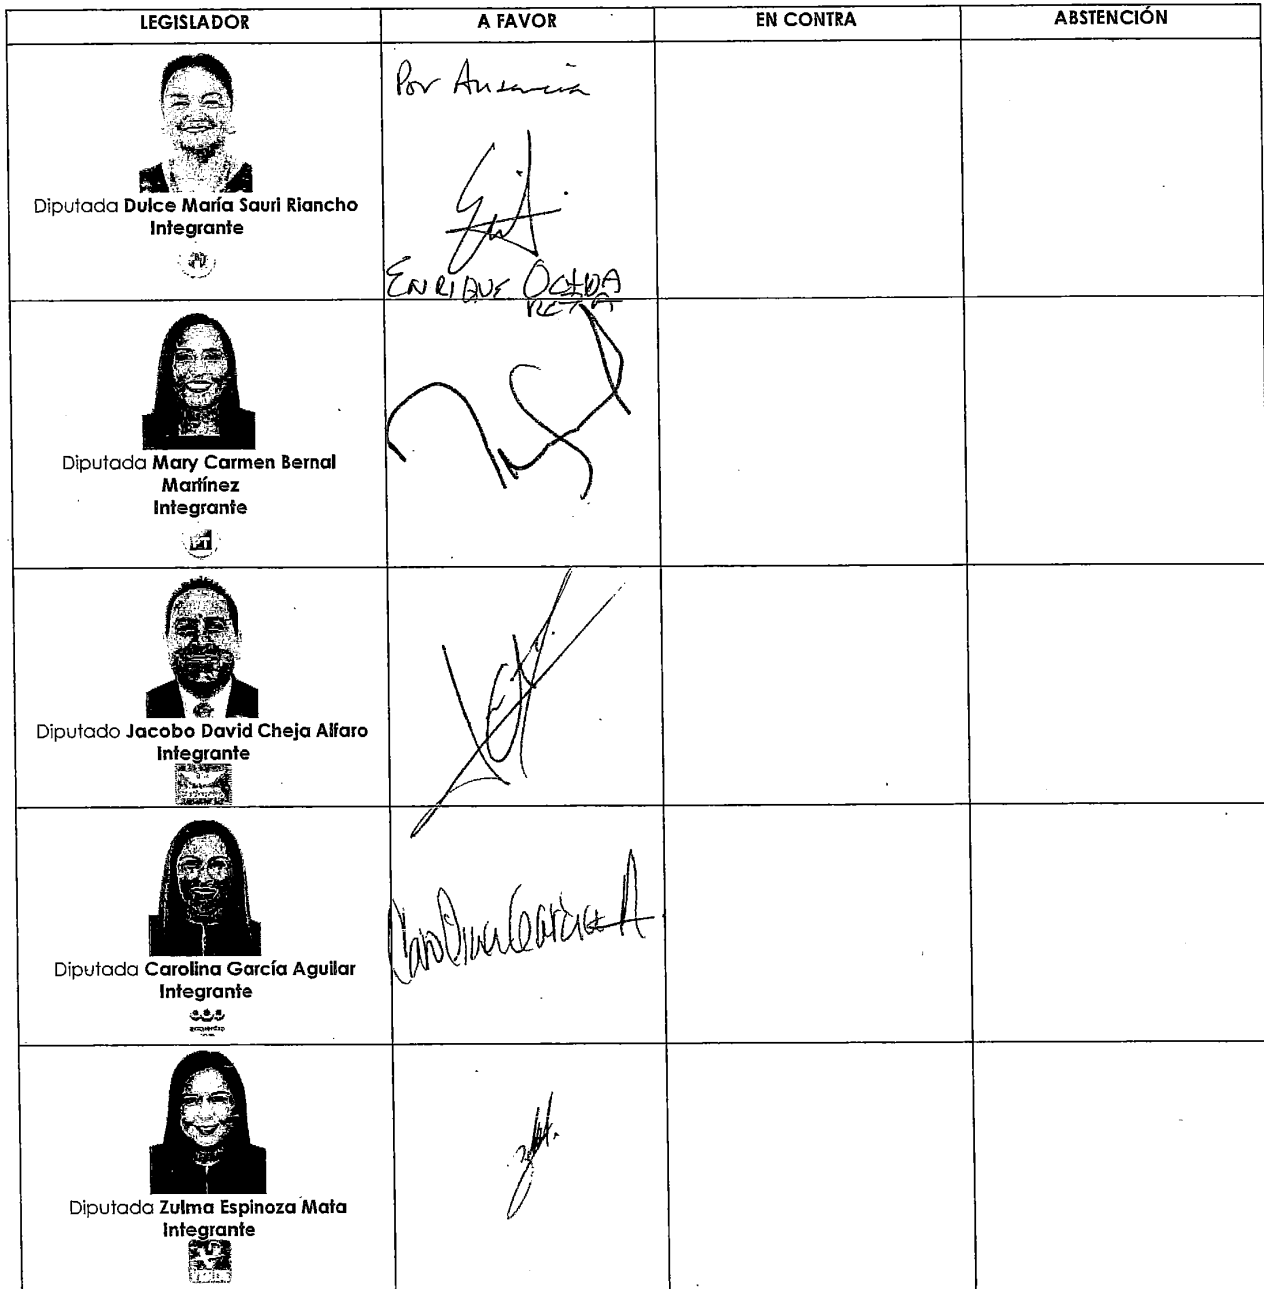 LEGISLADOR A FAVOR EN CONTRA ABSTENCIÓN
Por Ausencia
Diputada Dulce María Sauri Riancho
Integrante
ENRIQUE OCHOA
REZA
Diputada Mary Carmen Bernal
Martínez
Integrante
PT
Diputado Jacobo David Cheja Alfaro
Integrante
Carolina García A
Diputada Carolina García Aguilar
Integrante
encuentro
Diputada Zulma Espinoza Mata
Integrante